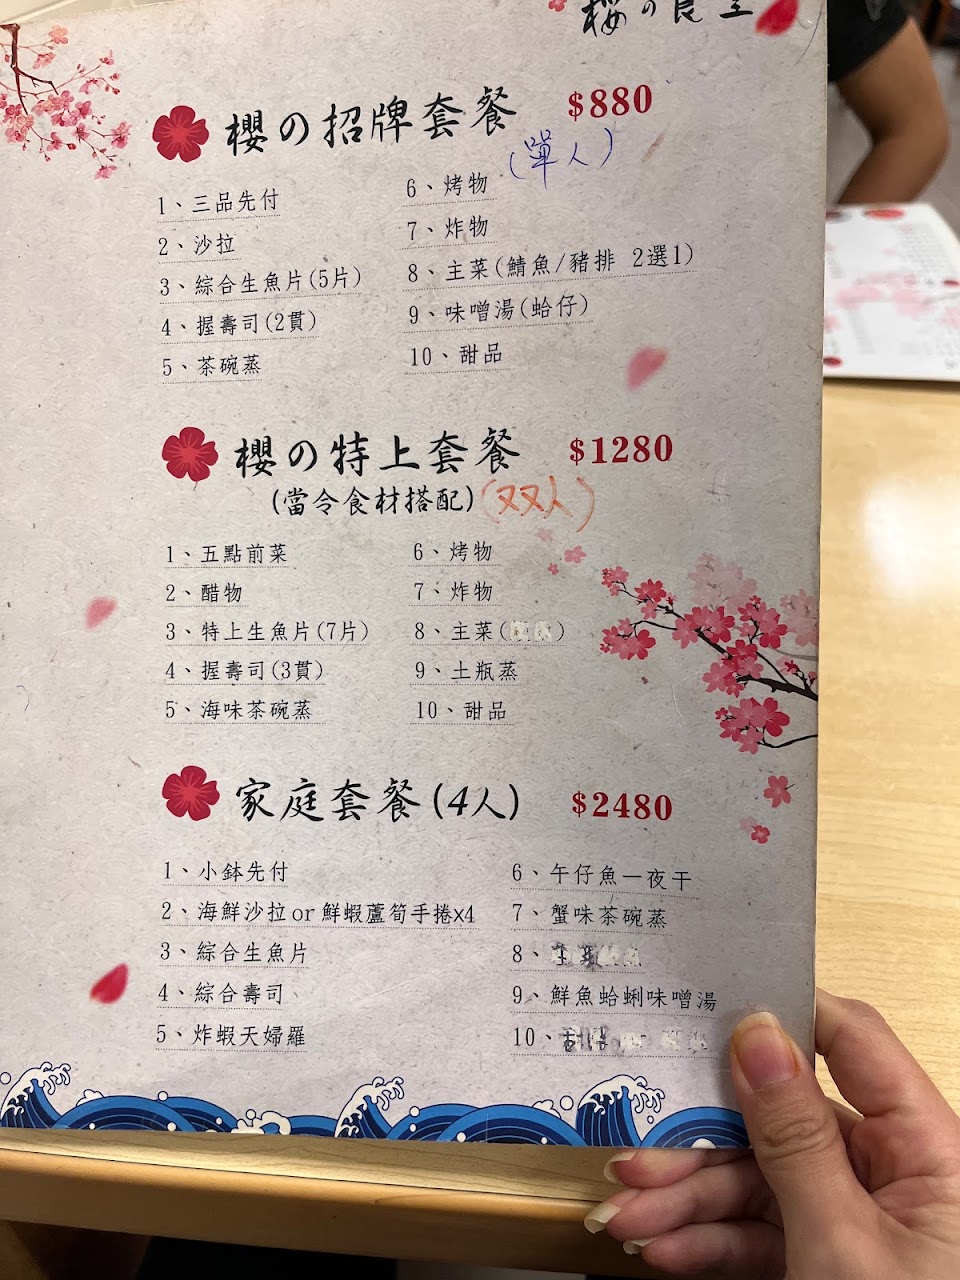 櫻の食堂
櫻の招牌套餐 $880
(單人)
1、三品先付
2、沙拉
3、綜合生魚片(5片)
4、握壽司(2貫)
5、茶碗蒸
6、烤物
7、炸物
8、主菜(鯖魚/豬排 2選1)
9、味噌湯(蛤仔)
10、甜品
櫻の特上套餐 $1280
(當令食材搭配) (双双人)
1、五點前菜
2、醋物
3、特上生魚片(7片)
4、握壽司(3貫)
5、海味茶碗蒸
6、烤物
7、炸物
8、主菜( )
9、土瓶蒸
10、甜品
家庭套餐(4人) $2480
1、小鉢先付
2、海鮮沙拉or鮮蝦蘆筍手捲x4
3、綜合生魚片
4、綜合壽司
5、炸蝦天婦羅
6、午仔魚一夜干
7、蟹味茶碗蒸
8、
9、鮮魚蛤蜊味噌湯
10、